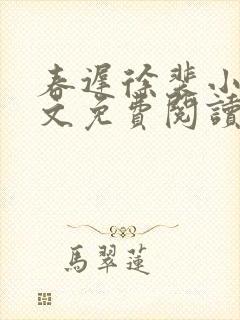 春遲徐裴小
文免費閱讀
馬翠蓮